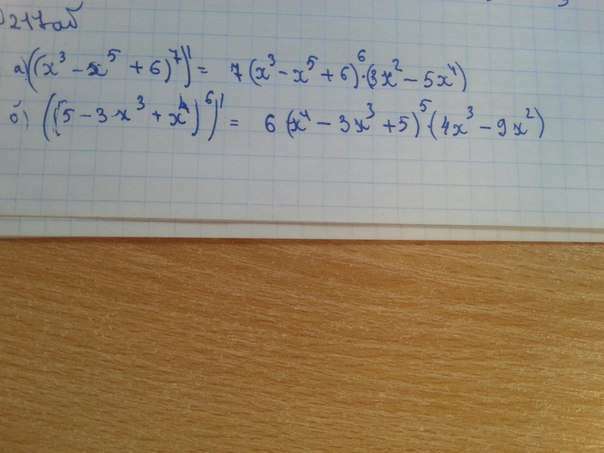 217 аб
а) ((x³ - x⁵ + 6)⁷)' = 7(x³ - x⁵ + 6)⁶·(3x² - 5x⁴)
б) ((5 - 3x³ + x⁴)⁶)' = 6(x⁴ - 3x³ + 5)⁵·(4x³ - 9x²)